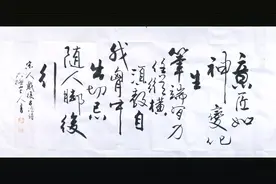 意匠如
神變化
生
筆端有力
任縱横
須教自
我胸中
出切忌
随人脚後
行
宋人戴復古